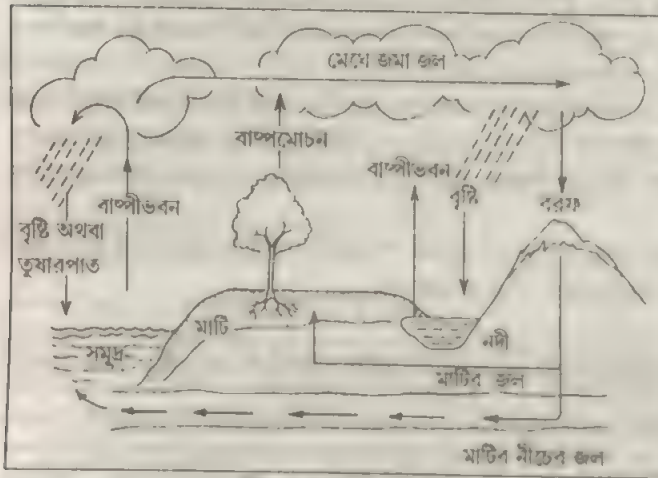 মেঘে জমা জল
বাষ্পমোচন
বাষ্পীভবন
বৃষ্টি
বরফ
বাষ্পীভবন
বৃষ্টি অথবা
তুষারপাত
মাটি
নদী
সমুদ্র
মাটির জল
মাটির নীচের জল